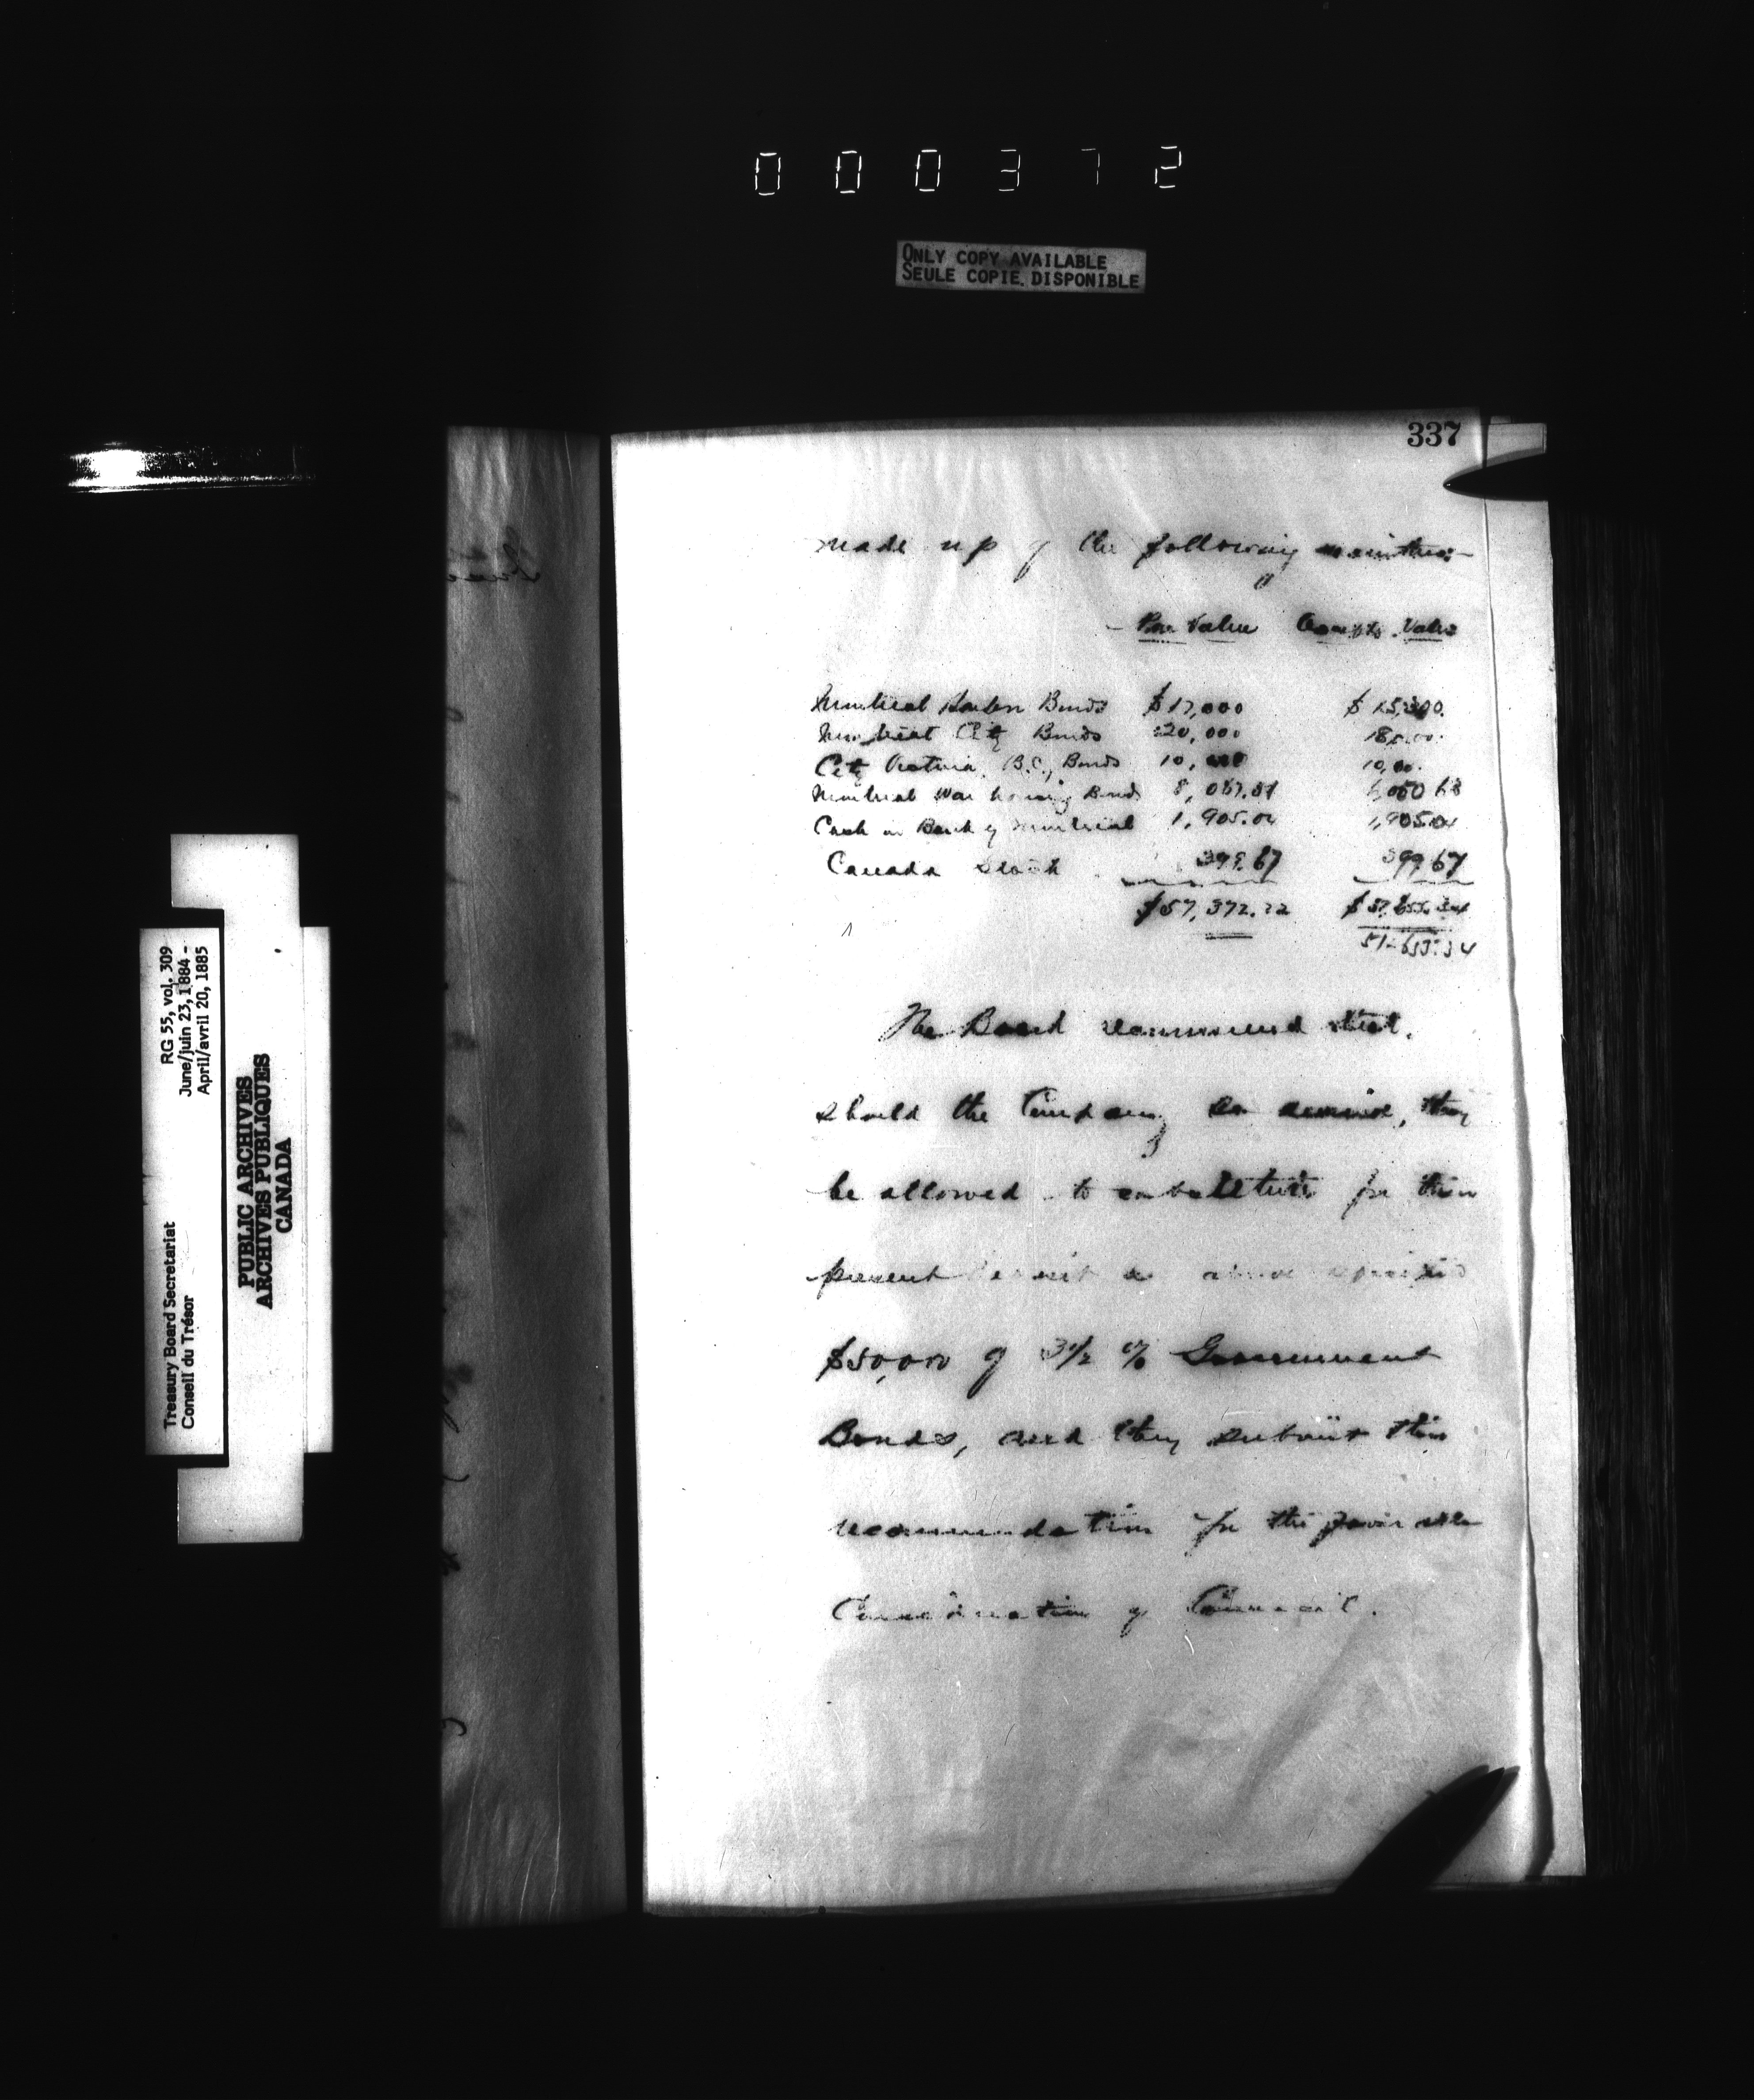 000372
ONLY COPY AVAILABLE
SEULE COPIE DISPONIBLE
337
made up of the following securities:-
Par Value Accepts. Value
Montreal Harbor Bonds $17,000 $15,300.
Montreal City Bonds 20,000 18,000.
City Victoria, B.C., Bonds 10,000 10,00.
Montreal Warehousing Bonds 8,067.51 6,050 63
Cash in Bank of Montreal 1,905.04 1,905.04
Canada Stock 399.67 399.67
$57,372.22 $51,655.34
51,655.34
The Board recommend that,
should the Company so desire, they
be allowed to substitute for their
present deposit as above specified
$50,000 of 3½ % Government
Bonds, and they submit this
recommendation for the favorable
Consideration of Council.
RG 55, vol. 309
June/juin 23, 1884 -
April/avril 20, 1885
Treasury Board Secretariat
Conseil du Trésor
PUBLIC ARCHIVES
ARCHIVES PUBLIQUES
CANADA